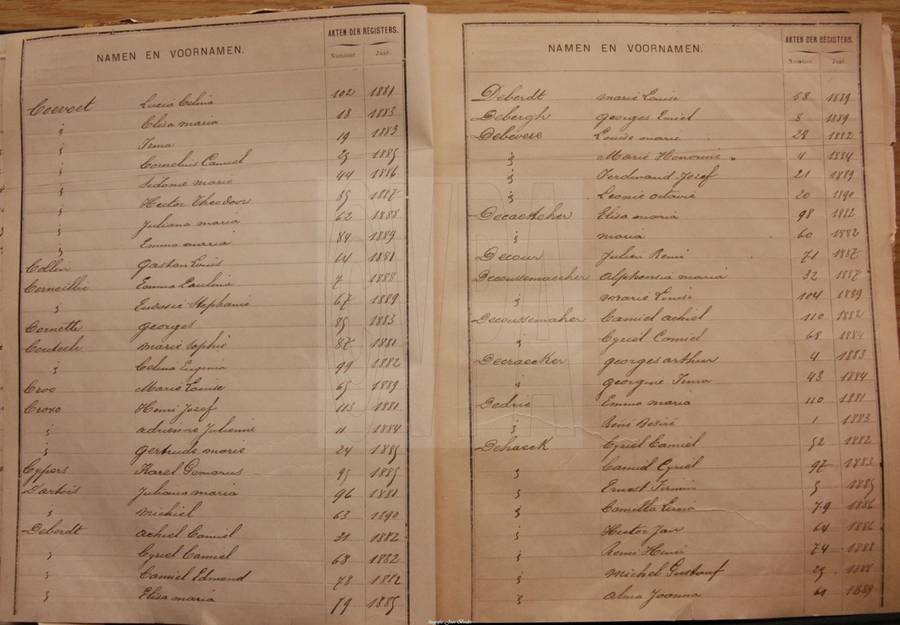 NAMEN EN VOORNAMEN. AKTEN DER REGISTERS.
Nummer Jaar.
Coevoet Lucia Celina 102 1881
" Elisa maria 13 1883
" Irma 19 1883
" Cornelius Camiel 25 1885
" Sidonie marie 44 1886
" Hector Theodoor 35 1887
" Juliana maria 62 1888
" Emma maria 84 1889
Collin Gaston Louis 14 1881
Corneillie Emma Paulina 7 1888
" Stephanie 67 1889
Cornette georges 85 1883
marie Sophie 87 1881
" Celina Eugenia 99 1882
Croo Marie Louise 65 1889
Croxo Henri Josef 113 1881
" adrienne Julienne 11 1884
" gertrude marie 24 1885
Cypers Karel 95 1885
Dartois Juliana maria 96 1881
" michiel 63 1890
Deberdt achiel Camiel 31 1882
" Cyriel Camiel 68 1882
" Camiel Edmond 78 1882
" Elisa maria 79 1885
NAMEN EN VOORNAMEN. AKTEN DER REGISTERS.
Nummer Jaar.
Deberdt marie Louise 58 1889
Debergh georges Emiel 8 1889
Debevere Louise marie 28 1882
" Marie Honorine 4 1884
" Ferdinand Josef 21 1889
" Leonie octavie 20 1890
Decaestecker Elisa maria 98 1882
" maria 60 1882
Decour Julien Remi 71 1887
Decoussemaecker alphonsia maria 32 1887
" marie Louise 104 1889
Decoussemaker Camiel achiel 110 1882
" Cyriel Camiel 68 1884
Decraecker georges arthur 4 1883
" georgine Irma 43 1884
Dedrie Emma maria 110 1881
" René Désiré 1 1883
Dehaeck Cyriel Camiel 52 1882
" Camiel Cyriel 97 1883
" Ernest Firmin 5 1885
" Camilla 79 1886
" Hector Jan 64 1886
" Remi Henri 74 1888
" Michel Gustaaf 25 1888
" alma Joanna 61 1889